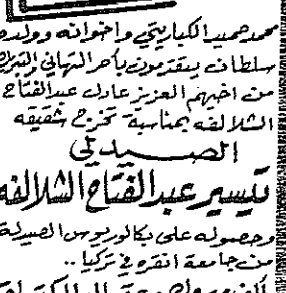 محمد حميد الكباريتي واخوانه وولده
سلطان يتقدمون بأحر التهاني والتبريك
من اخيهم العزيز عادل عبدالفتاح
الشلالفه بمناسبة تخرج شقيقه
الصيدلي
تيسير عبدالفتاح الشلالفه
وحصوله على بكالوريوس الصيدلة
من جامعة انقره في تركيا ..